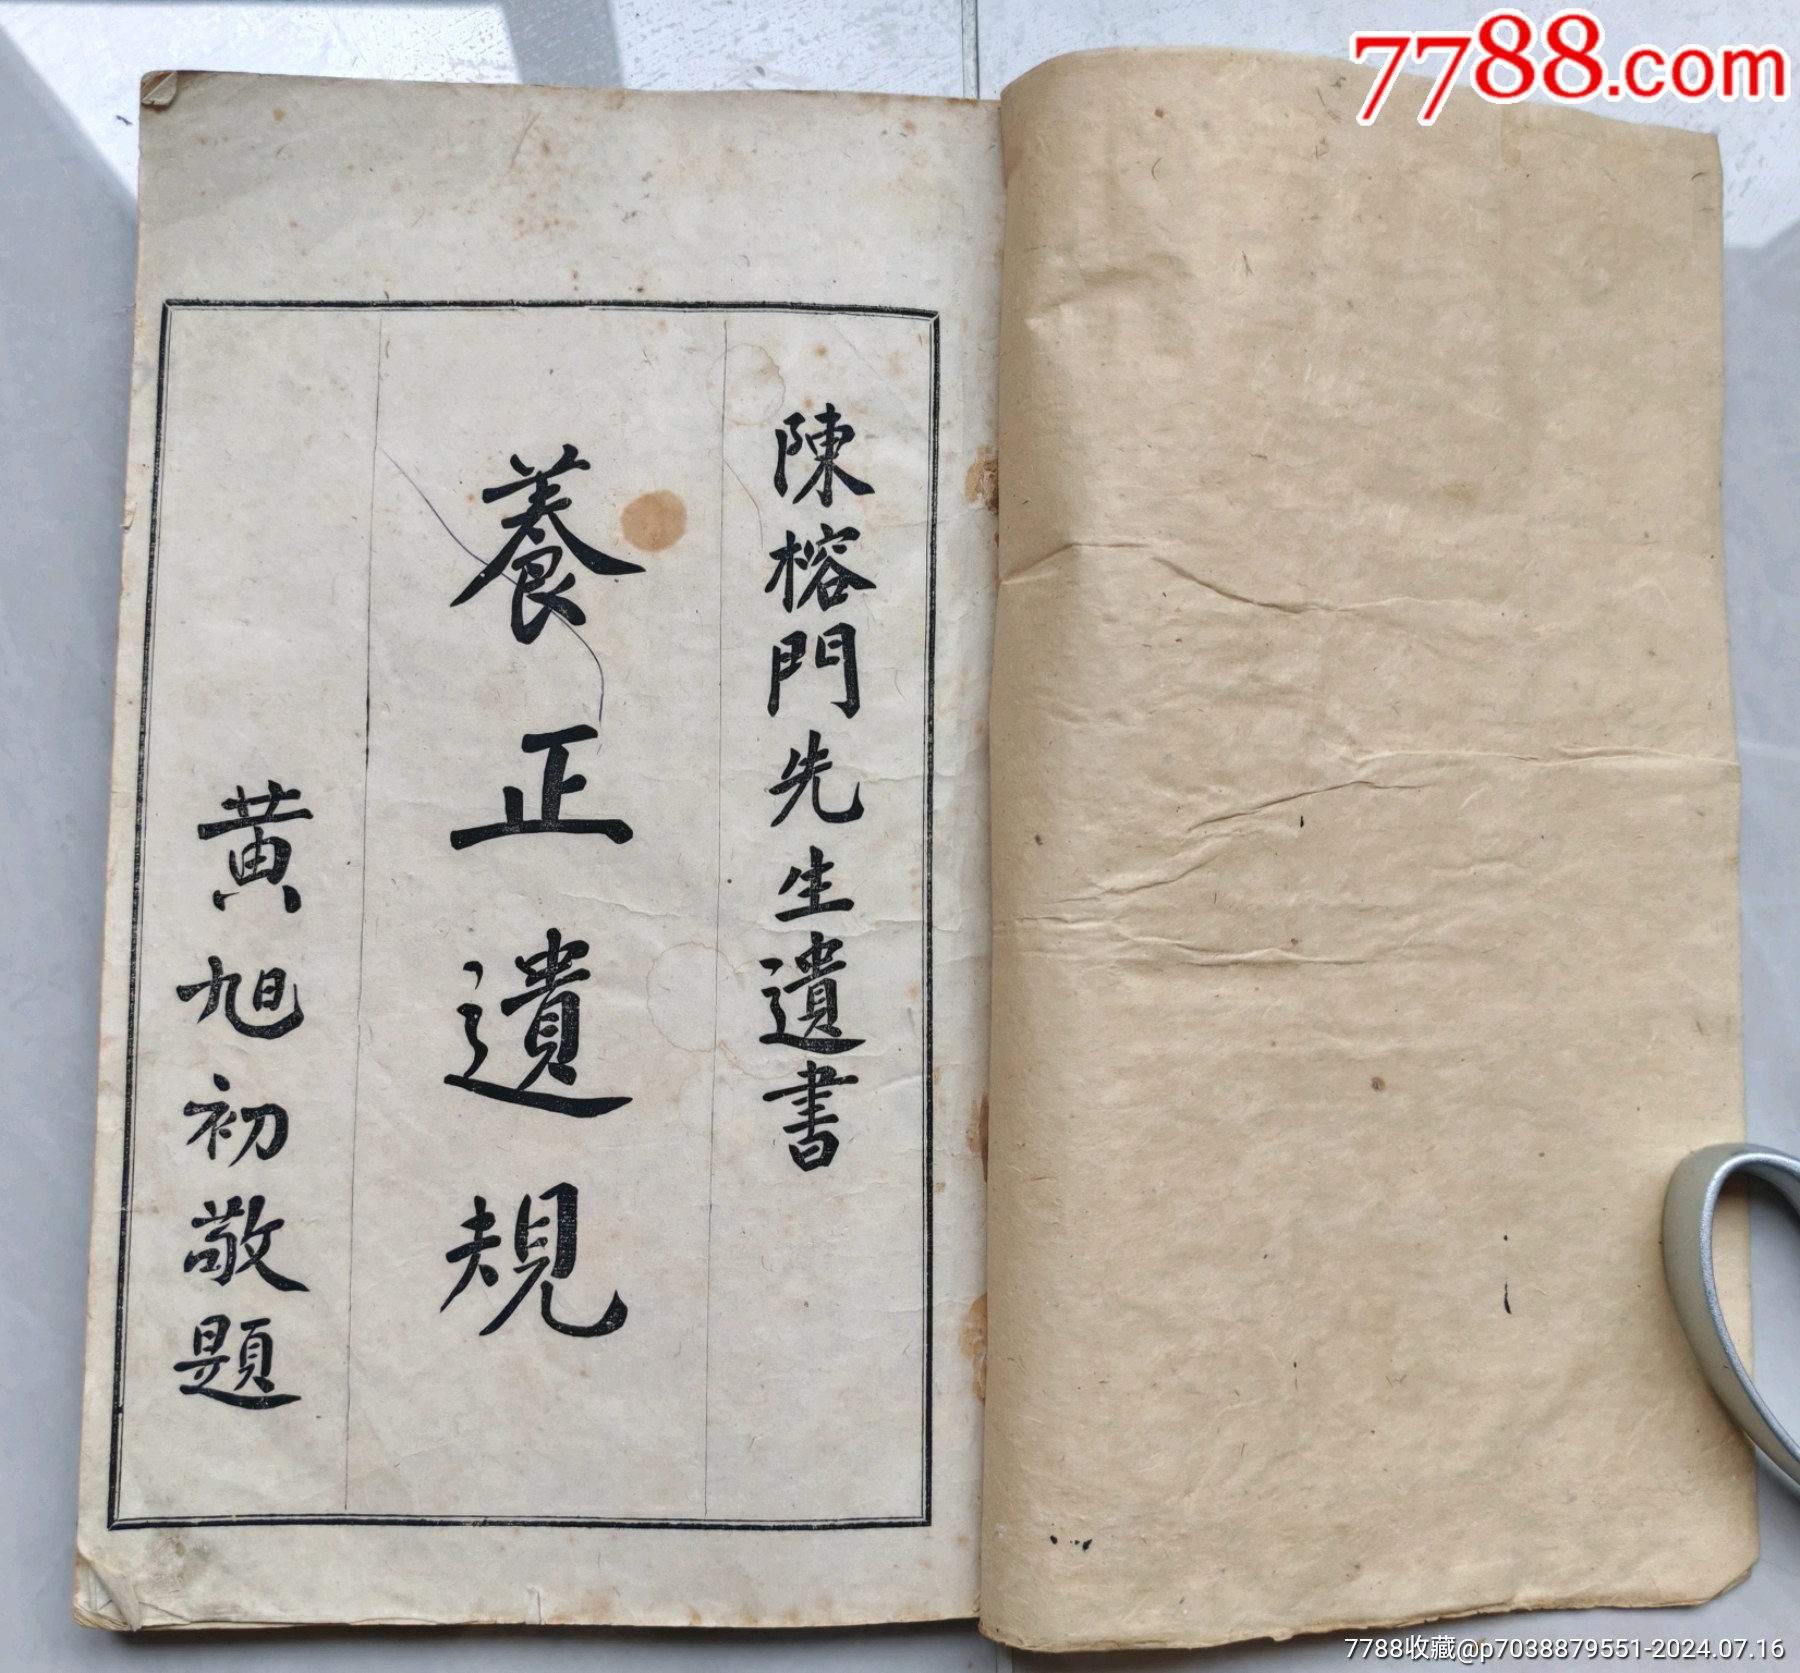 7788.com
陳榕門先生遺書
養正遺規
黃旭初敬題
7788收藏@p7038879551-2024.07.16